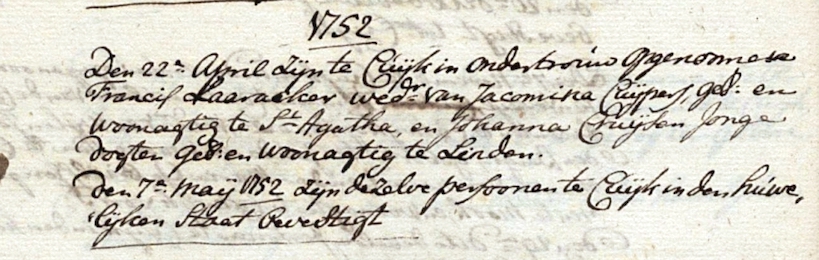 1752
Den 22n April zijn te Cuijk in ondertrouw opgenomen
Francis Laaracker wedr: van Jacomina Cuijpers, geb: en
woonagtig te St Agatha, en Johanna Cruijsen Jonge
dogter geb: en woonagtig te Linden.
den 7n: maij 1752 zijn dezelve persoonen te Cuijk in den huwe,
lijken Staat bevestigt